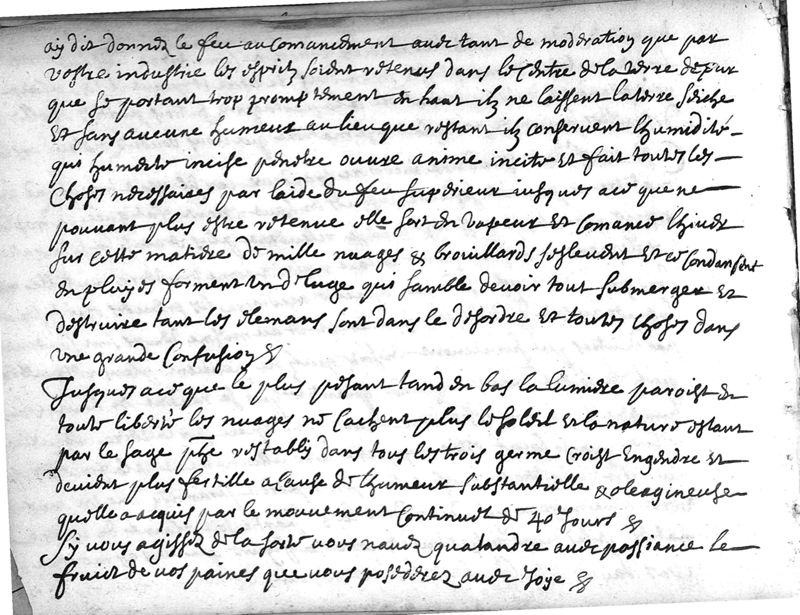 aÿ dit donnez le feu au comancement avec tant de moderation que par
vostre industrie les esprits soient retenus dans le centre de la terre de peur
que se portant trop promptement en haut ilz ne laissent la terre seiche
et sans aucune humeur au lieu que restant ilz conservent lhumidité
qui humecte incise penetre ouvre anime incite et fait toutes les
choses necessaires par laide du feu superieur iusques a ce que ne
pouvant plus estre retenue elle sort en vapeur et comance lhiver
sur cette matiere de mille nuages & brouillards seslevent et ce condansent
en pluÿes forment un deluge qui samble devoir tout submerger et
destruire tant les elemans sont dans le desordre et toutes choses dans
une grande confusion &
Jusques a ce que le plus pesant tand en bas la lumiere paroist en
toute liberté les nuages ne cachent plus le soleil et la nature estant
par le sage phe restablÿ dans tous les trois germe croist engendre et
devient plus fertille a cause de lhumeur substantielle & oleagineuse
quelle a acquis par le mouvement continuel de 40 Jours &
Sÿ vous agissez de la sorte vous navez qu atandre avec passiance le
fruict de vos paines que vous posederez avec Joÿe &